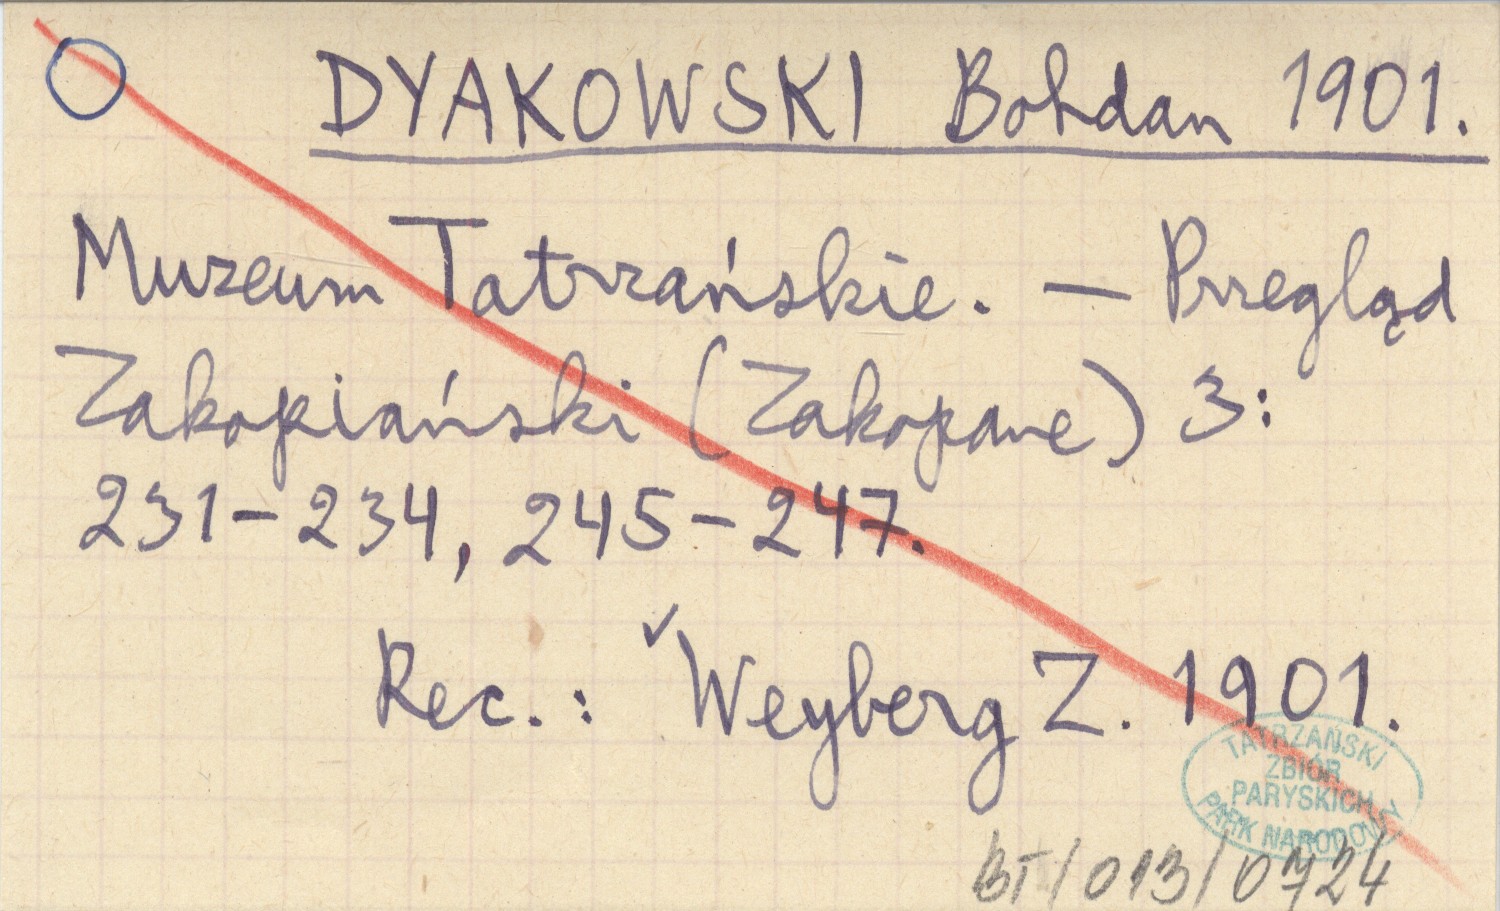 DYAKOWSKI Bohdan 1901.
Muzeum Tatrzańskie. — Przegląd
Zakopiański (Zakopane) 3:
231-234, 245-247.
Rec.: ✓Weyberg Z. 1901.
TATRZAŃSKI
ZBIÓR
PARYSKICH
PARK NARODOWY
BT/013/0724